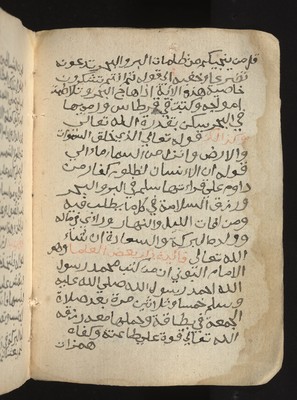 قل من ينجيكم من ظلمات البر والبحر تدعونه
تضرعا وخفية الى قوله ثم انتم تشركون
خاصية هذه الاية اذا هاج البحر وتلاطمة
امواجه وكتبت في قرطاس ورميها
في البحر سكن بقدرة الله تعالى
قوله تعالى الذي خلق السموات
والارض وانزل من السماء ماء الى
قوله ان الانسان لظلوم كفار من
داوم على قراتها سلم في البر والبحر
ورزق السلامة في كلما يطلب فيه
ومن افات الليل والنهار وراى في ماله
وولده البركة والسعادة ان شاء
الله تعالى فايدة قال بعض العلما وهو
الامام البوني ان من كتب محمد رسول
الله احمد رسول الله صلى الله عليه
وسلم خمسا وثلاثين مرة بعد صلاة
الجمعة في بطاقة وحملها معه رزقه
الله تعالى قوة على طاعته وكفاه
همزات